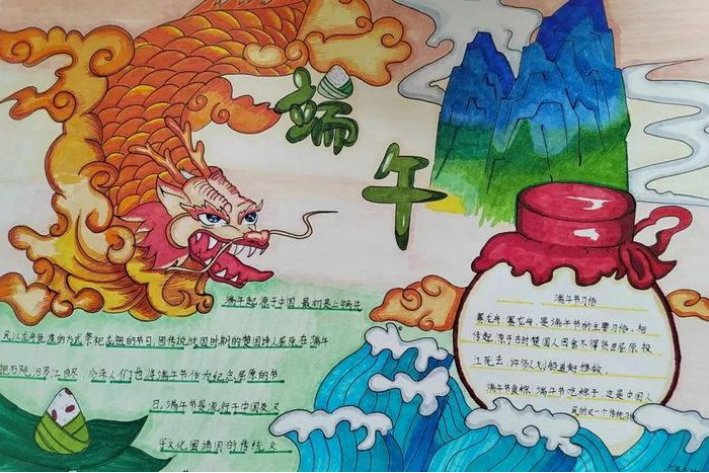 端午
端午起源于中国，最初是上古先
民以龙舟竞渡的方式祭祀龙祖的节日，因传说战国时期的楚国诗人屈原在端午
抱石跳汨罗江自尽 后来人们也将端午节作为纪念屈原的节
日，端午节是流行于中国及汉
字文化圈诸国的传统文
端午节习俗
赛龙舟 赛龙舟，是端午节的主要习俗，相
传起源于古时楚国人因舍不得贤臣屈原投
江死去，许多人划船追赶拯救。
端午节食粽 端午节吃粽子，这是中国人
民的又一个传统习俗